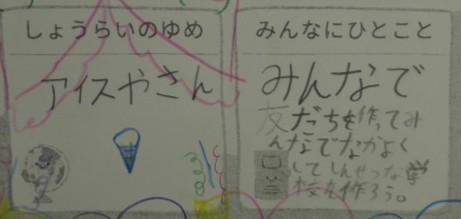 しょうらいのゆめ
アイスやさん
みんなにひとこと
みんなで
友だちを作ってみ
んなでなかよく
してしんせつな学
校を作ろう。